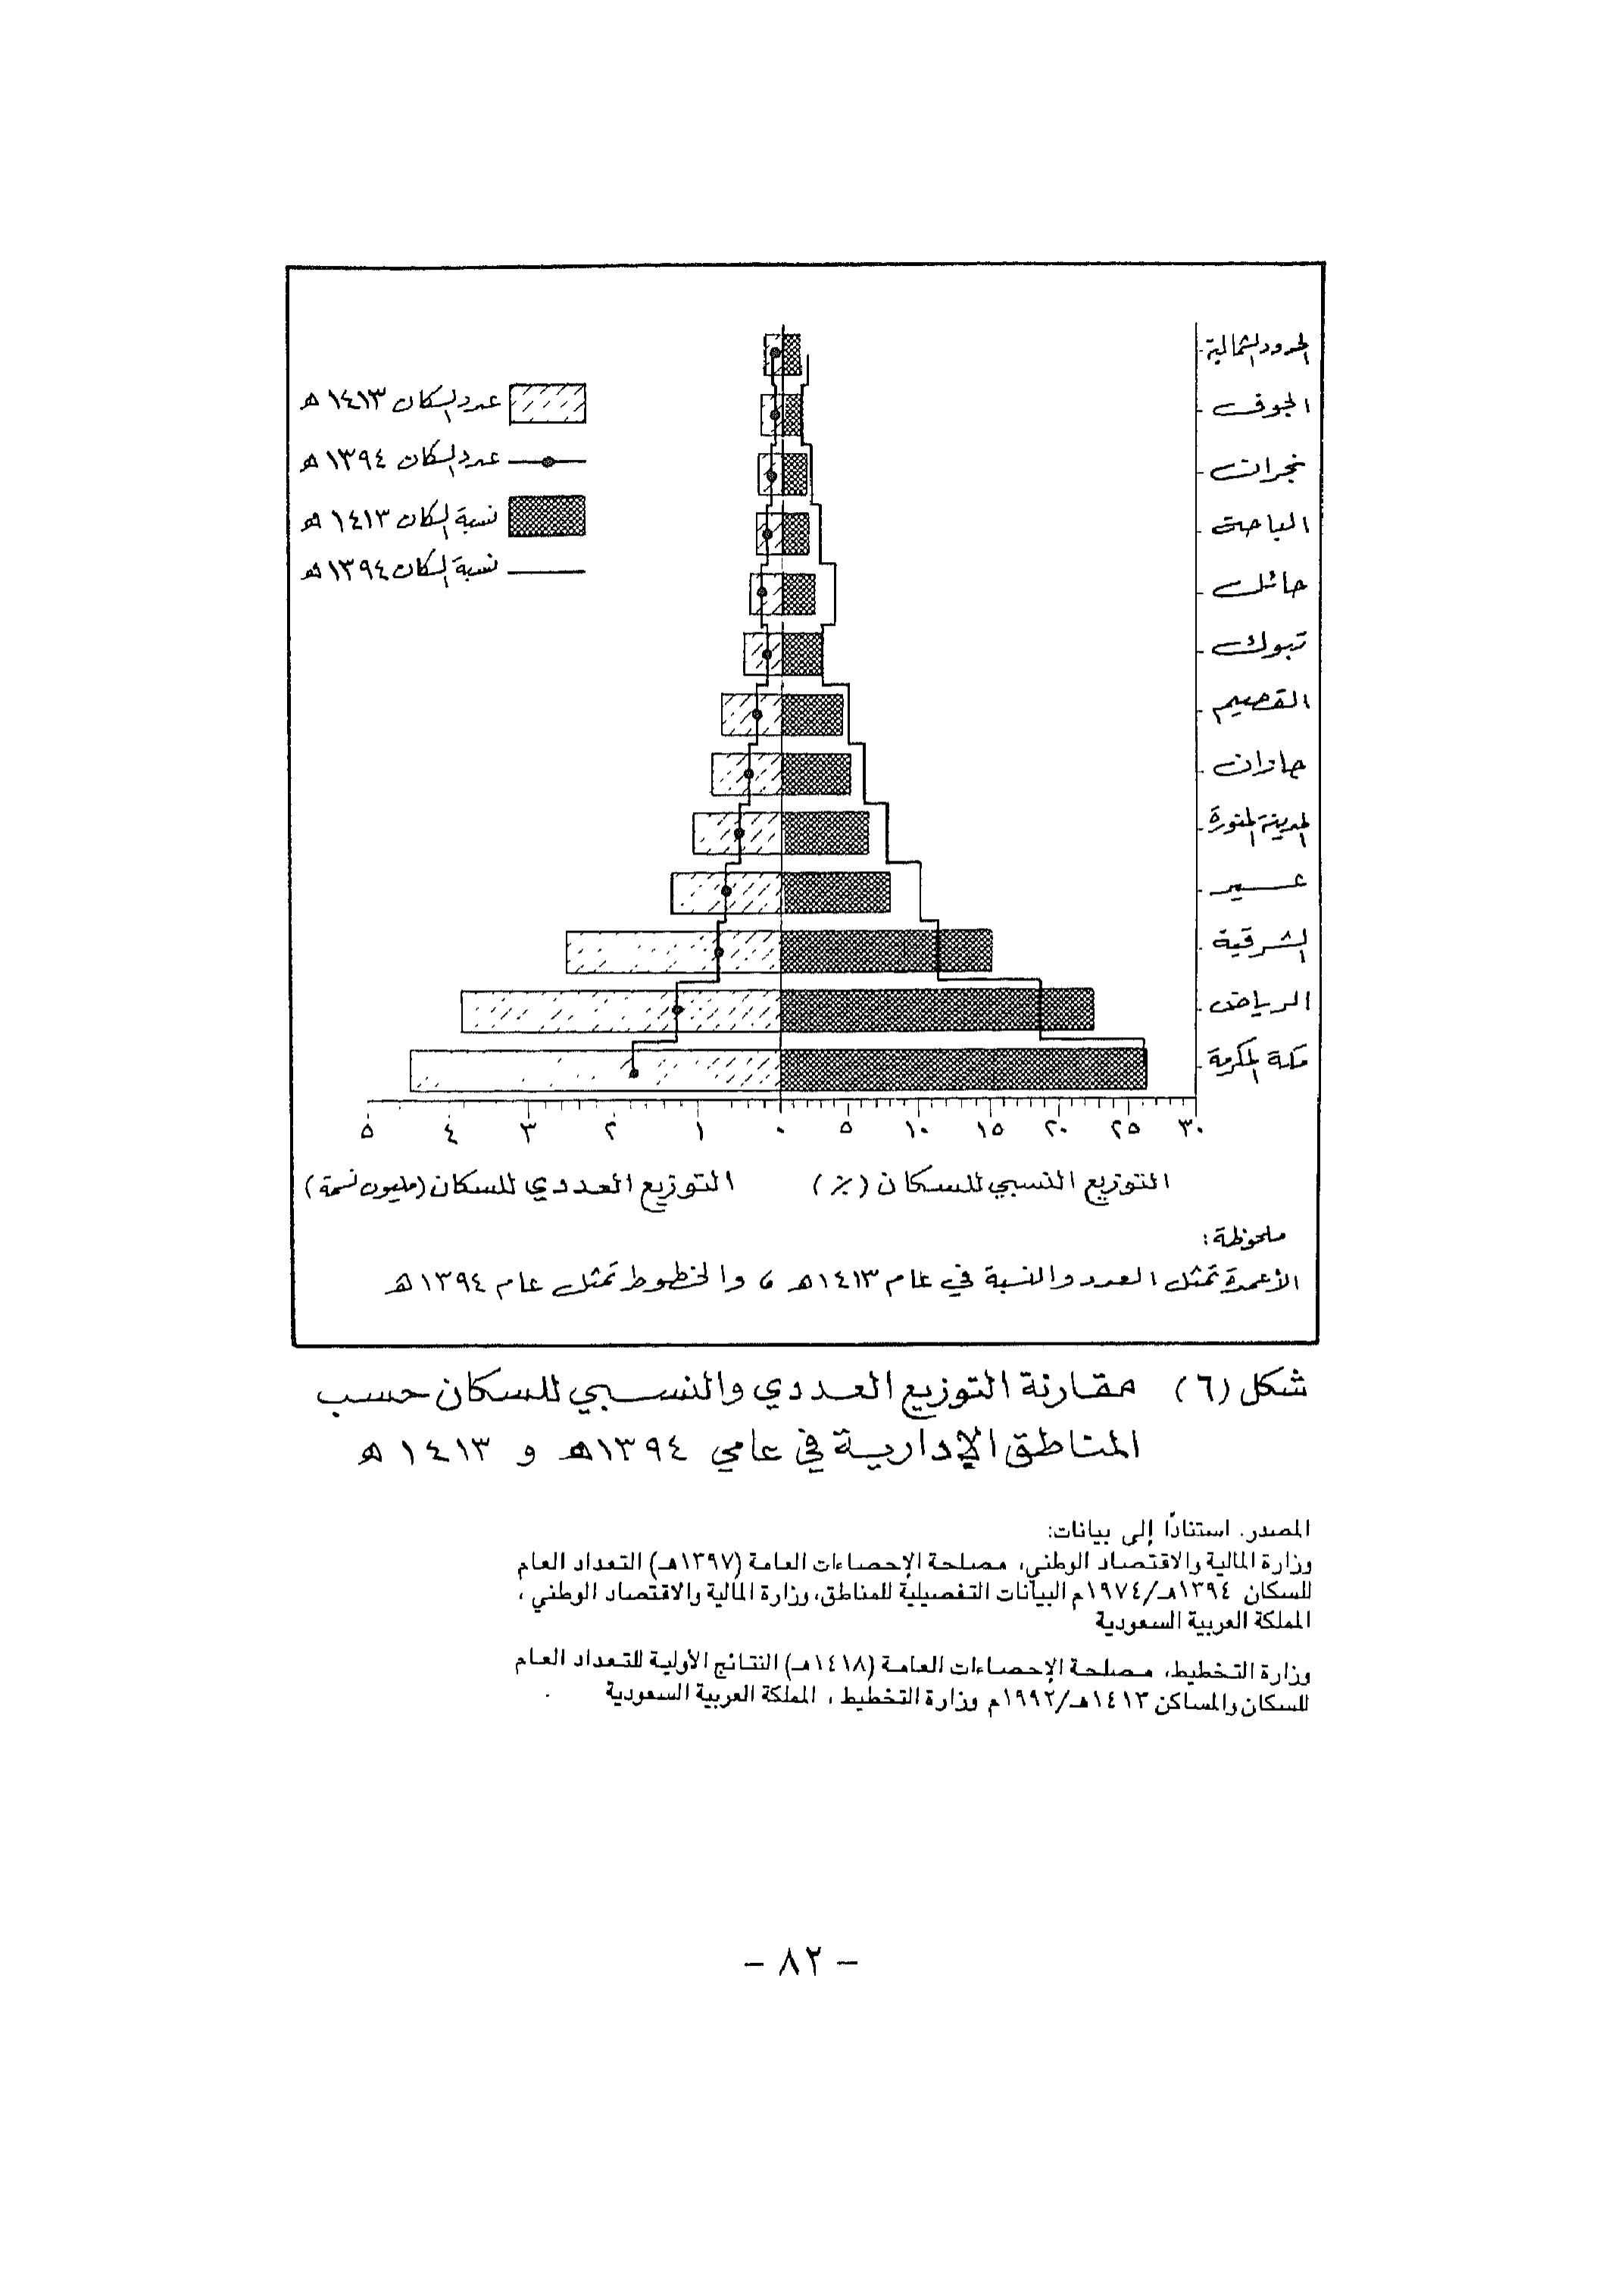 الحدود الشمالية
الجوف
نجران
الباحة
حائل
تبوك
القصيم
جازان
المدينة المنورة
عسير
الشرقية
الرياض
مكة المكرمة
عدد السكان ١٤١٣ هـ
عدد السكان ١٣٩٤ هـ
نسبة السكان ١٤١٣ هـ
نسبة السكان ١٣٩٤ هـ
٥ ٤ ٣ ٢ ١ ٠ ٥ ١٠ ١٥ ٢٠ ٢٥ ٣٠
التوزيع النسبي للسكان (٪)
التوزيع العددي للسكان (مليون نسمة)
ملحوظة:
الأعمدة تمثل العدد والنسبة في عام ١٤١٣هـ ، والخطوط تمثل عام ١٣٩٤هـ
شكل (٦) مقارنة التوزيع العددي والنسبي للسكان حسب
المناطق الإدارية في عامي ١٣٩٤هـ و ١٤١٣ هـ
المصدر. استنادًا إلى بيانات:
وزارة المالية والاقتصاد الوطني، مصلحة الإحصاءات العامة (١٣٩٧هـ) التعداد العام
للسكان ١٣٩٤هـ/١٩٧٤م البيانات التفصيلية للمناطق، وزارة المالية والاقتصاد الوطني ،
المملكة العربية السعودية
وزارة التخطيط، مصلحة الإحصاءات العامة (١٤١٨هـ) النتائج الأولية للتعداد العام
للسكان والمساكن ١٤١٣هـ/١٩٩٢م وزارة التخطيط ، المملكة العربية السعودية
- ٨٢ -